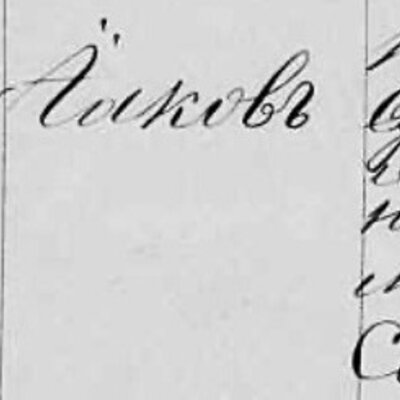 Їаковъ